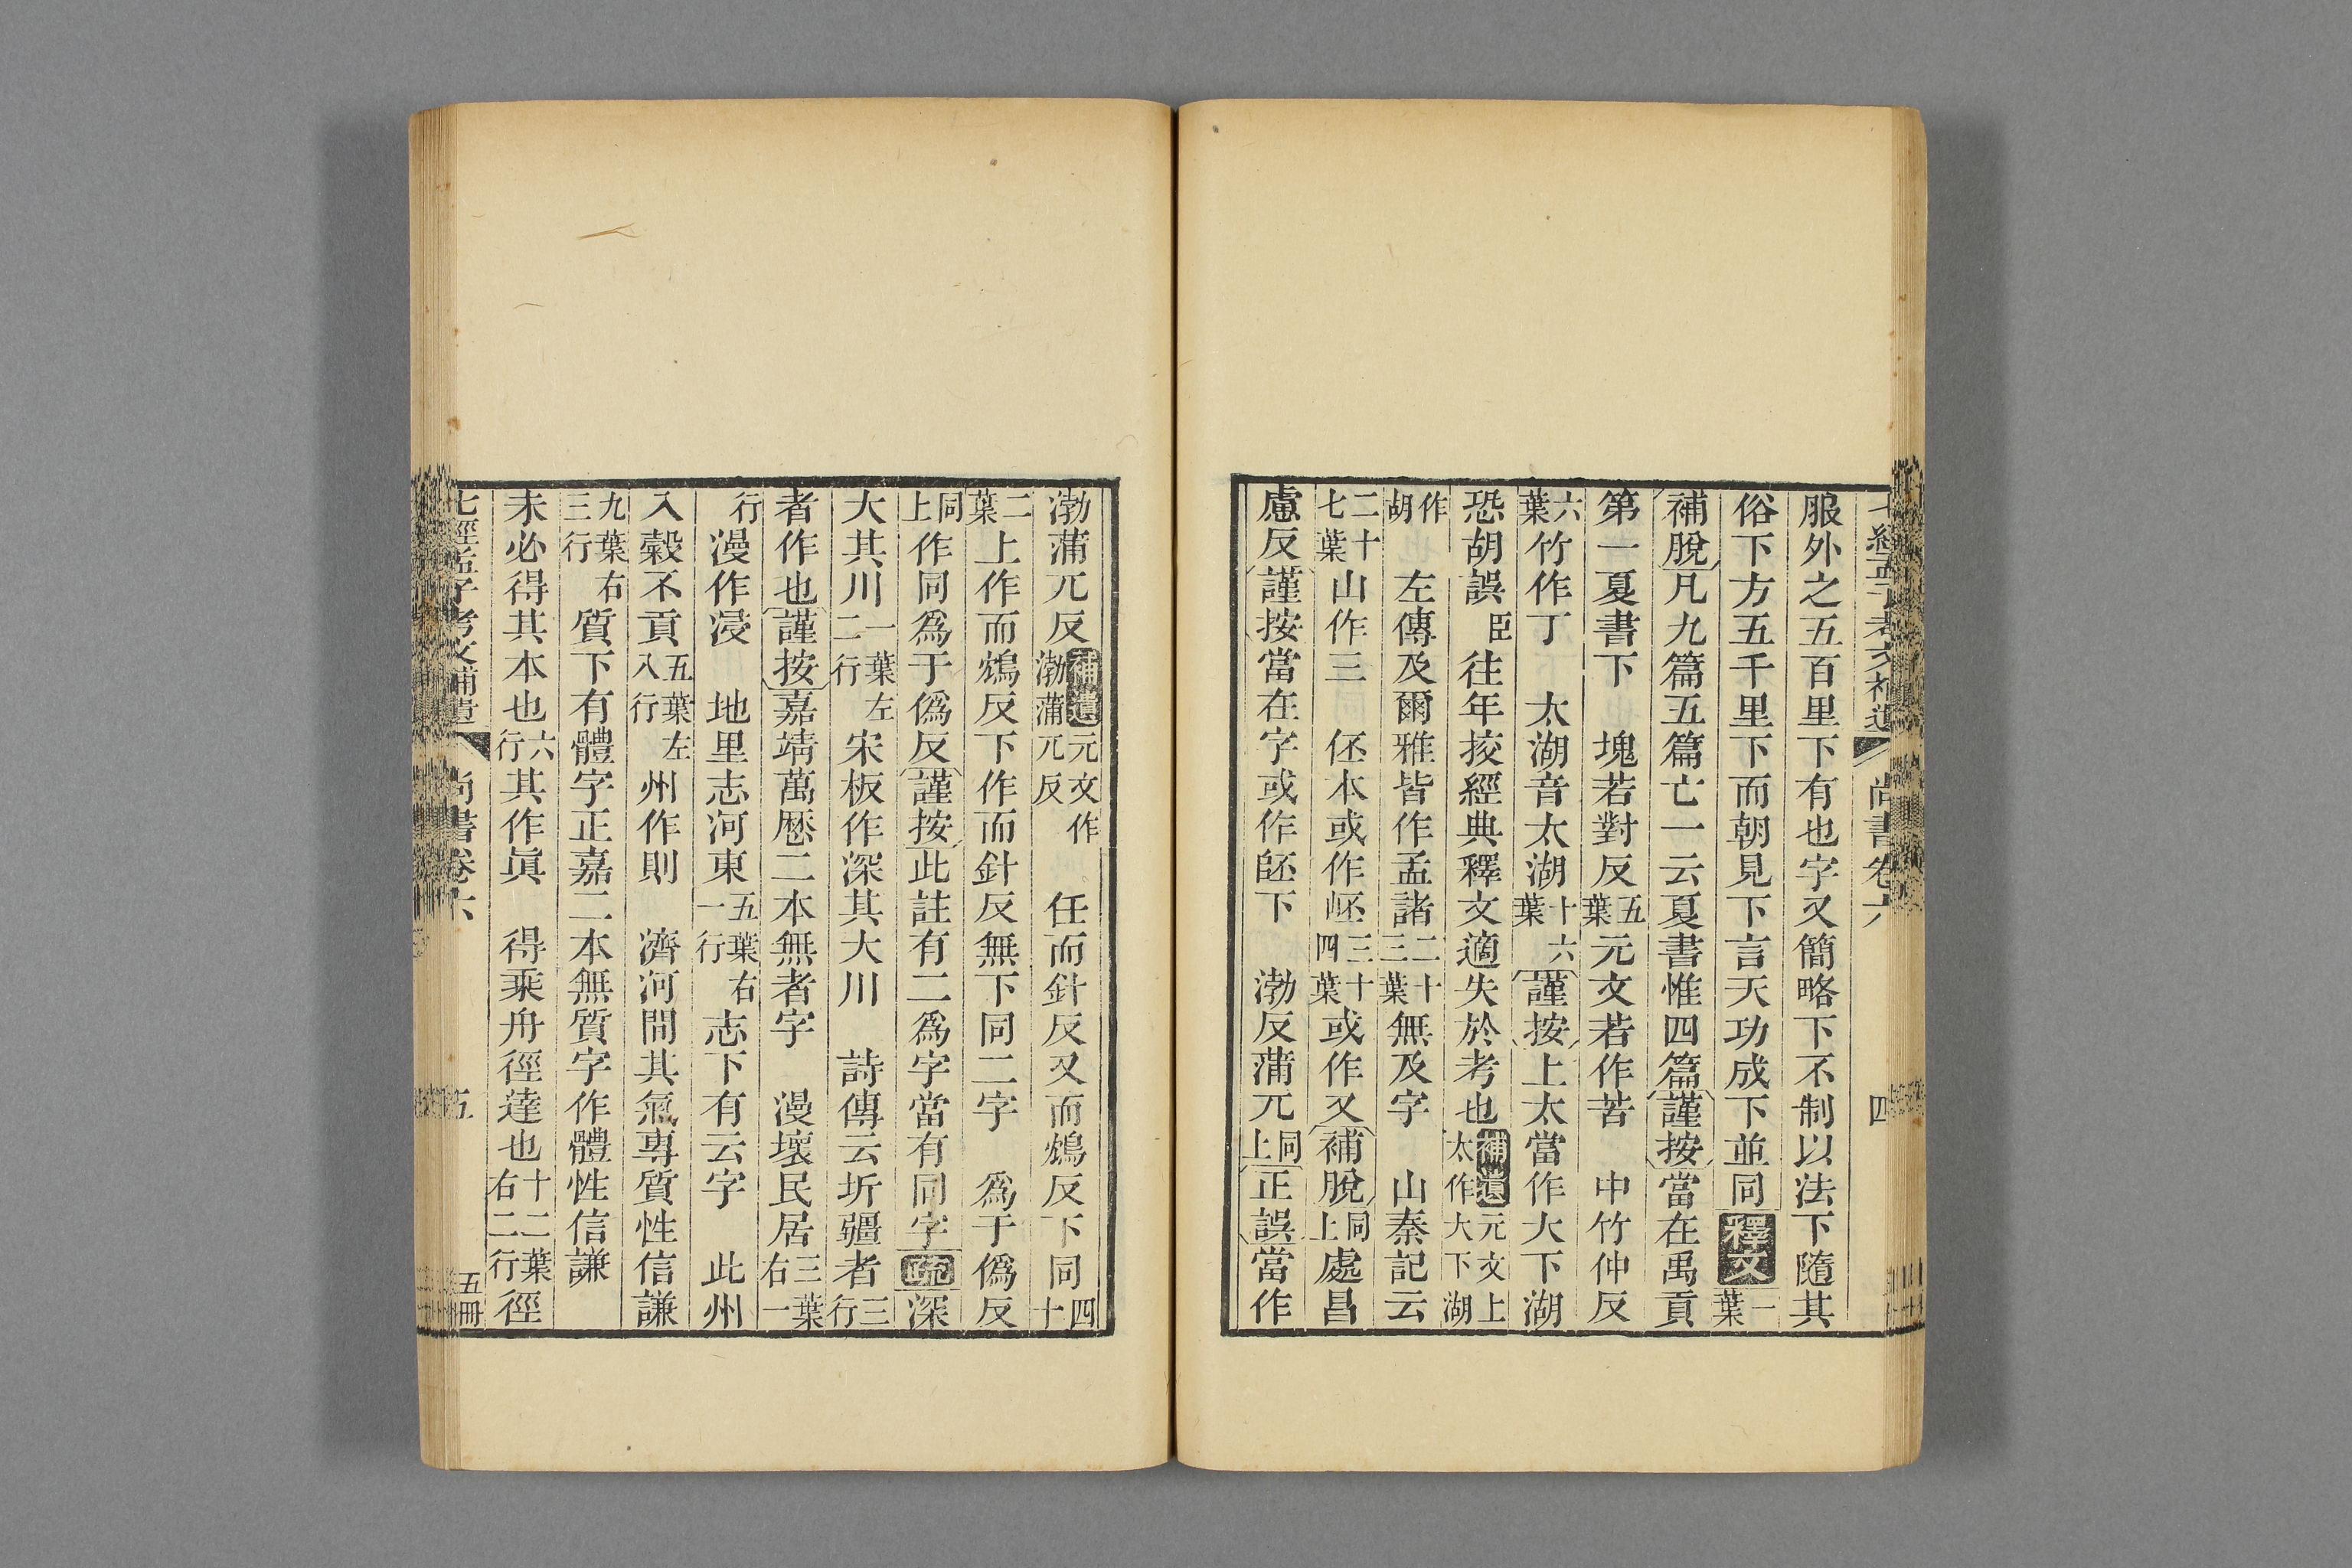 七經孟子考文補遺 尚書卷六 四
服外之五百里下有也字又簡略下不制以法下隨其
俗下方五千里下而朝見下言天功成下並同釋文一葉
補脫凡九篇五篇亡一云夏書惟四篇謹按當在禹貢
第一夏書下 塊若對反五葉元文若作苦 中竹仲反
六葉竹作丁 太湖音太湖十六葉謹按上太當作大下湖
恐胡誤臣往年挍經典釋文適失於考也補遺元文上太作大下湖
作胡 左傳及爾雅皆作孟諸二十三葉無及字 山秦記云
二十七葉山作三 伾本或作岯三十四葉或作又補脫同上處昌
慮反謹按當在字或作㔻下 渤反蒲兀同上正誤當作
渤蒲兀反補遺元文作渤蒲兀反 任而針反又而鴆反下同四十
二葉上作而鴆反下作而針反無下同二字 爲于僞反
同上作同爲于僞反謹按此註有二爲字當有同字疏深
大其川一葉左二行宋板作深其大川 詩傳云圻疆者三行
者作也謹按嘉靖萬厯二本無者字 漫壞民居三葉右一
行漫作浸 地里志河東五葉右一行志下有云字 此州
入穀不貢五葉左八行州作則 濟河間其氣專質性信謙
九葉右三行質下有體字正嘉二本無質字作體性信謙
未必得其本也六行其作眞 得乘舟徑達也十二葉右二行徑
七經孟子考文補遺 尚書卷六 五 五冊